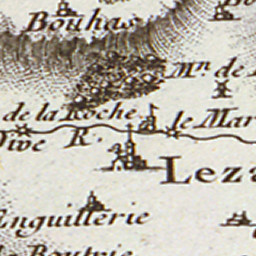 Bouhas
Mn. de
de la Roche
le Mar
Dive R.
Leza
Enguillerie